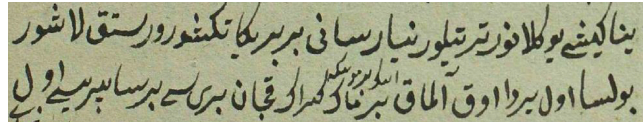 ينا كيشے يوكلانور ترتيلور نيارساني بر بريكا تكشورور ستق لاشور
بولسا اول بردا اوق آلماق بيرماك كيراك قچان بري سے برسا بيريسے اول